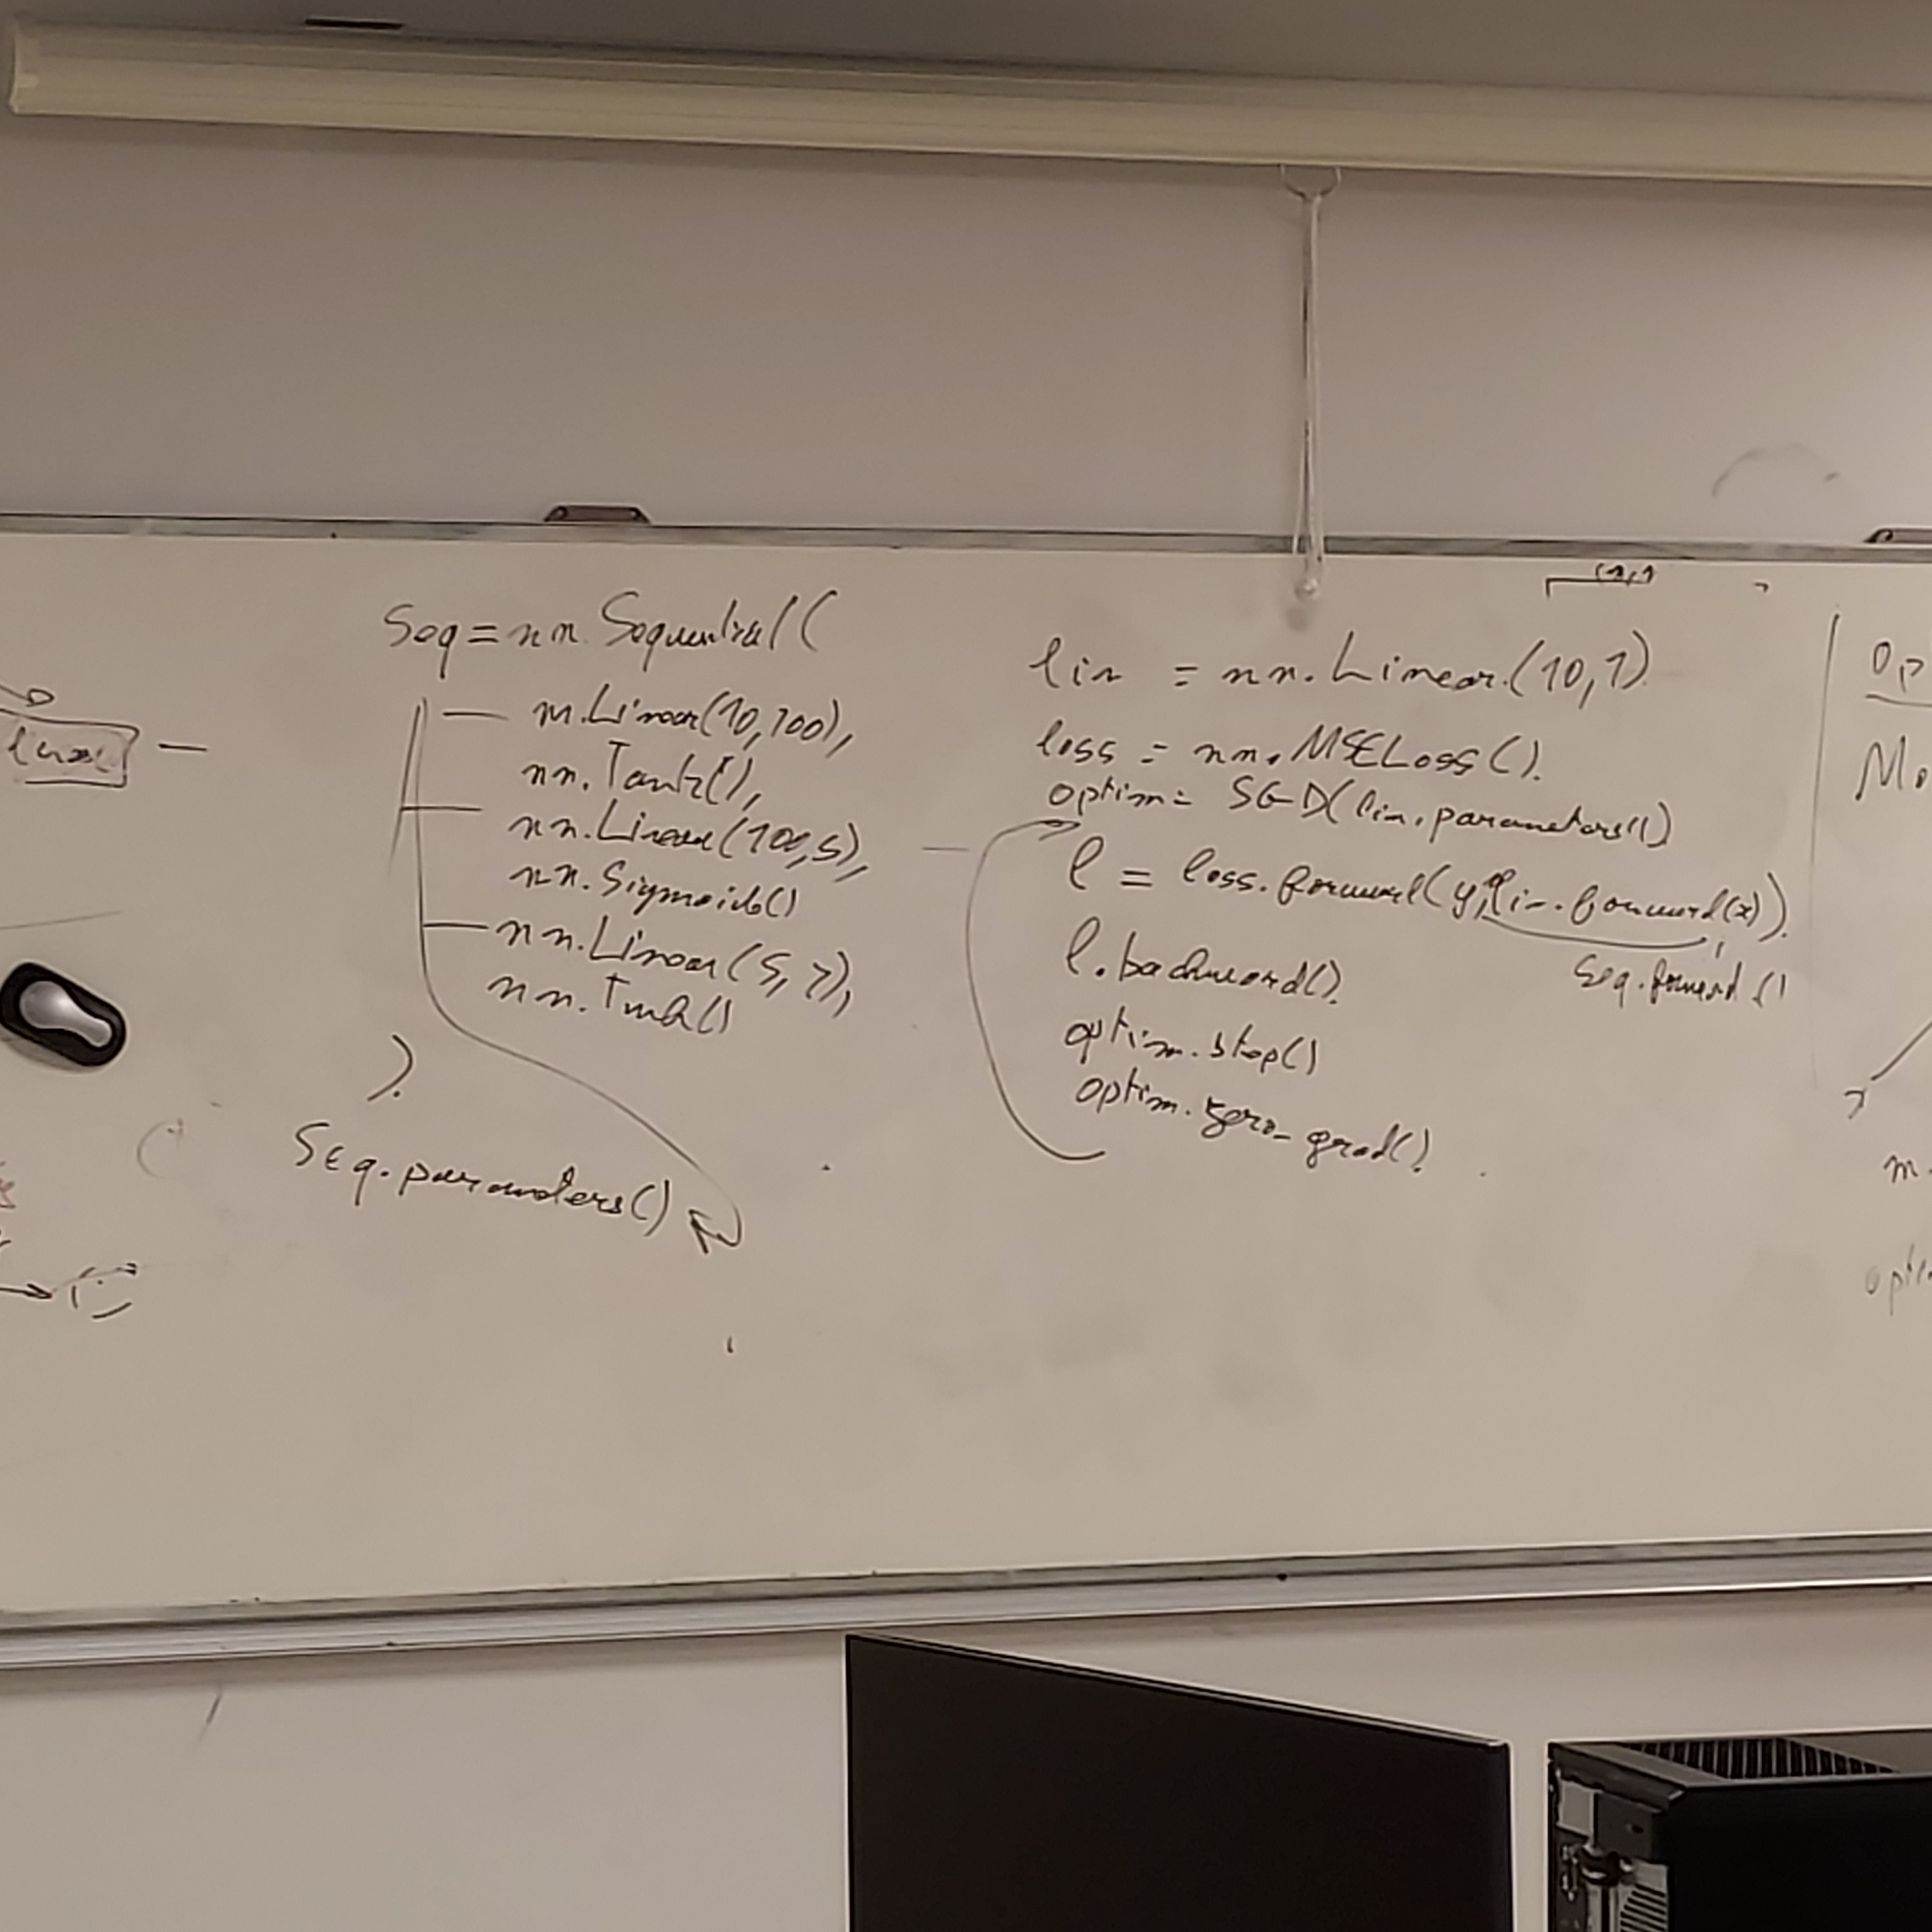 Seq = nn.Sequential(
nn.Linear(10,100),
nn.Tanh(),
nn.Linear(100,5),
nn.Sigmoid()
nn.Linear(5,7),
nn.Tanh()
).
Seq.parameters()
lin = nn.Linear.(10,1).
loss = nn.MSELoss().
optim= SGD(lin.parameters())
l = loss.forward(y, lin.forward(x)).
seq.forward()
l.backward().
optim.step()
optim.zero_grad().
Op
Mo
m.
opti